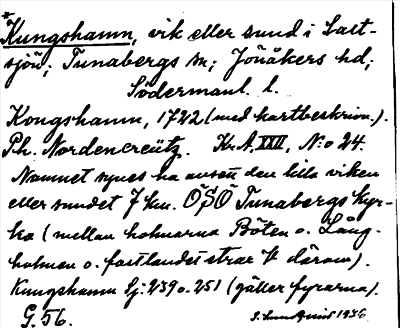 Kungshamn, vik eller sund i Salt-
sjön; Tunabergs sn; Jönåkers hd;
Södermanl. l.
Kongshamn, 1722 (med kartbeskrivn.).
Ph. Nordencreütz. Kr. A. XXII, N:o 24.
Namnet synes ha avsett den lilla viken
eller sundet 7 km. ÖSÖ Tunabergs kyr-
ka (mellan holmarna Böten o. Lång-
holmen o. fastlandet strax V därom).
Kungshamn Lj. 239 o. 251 (gäller fyrarna).
G. 56.
1936